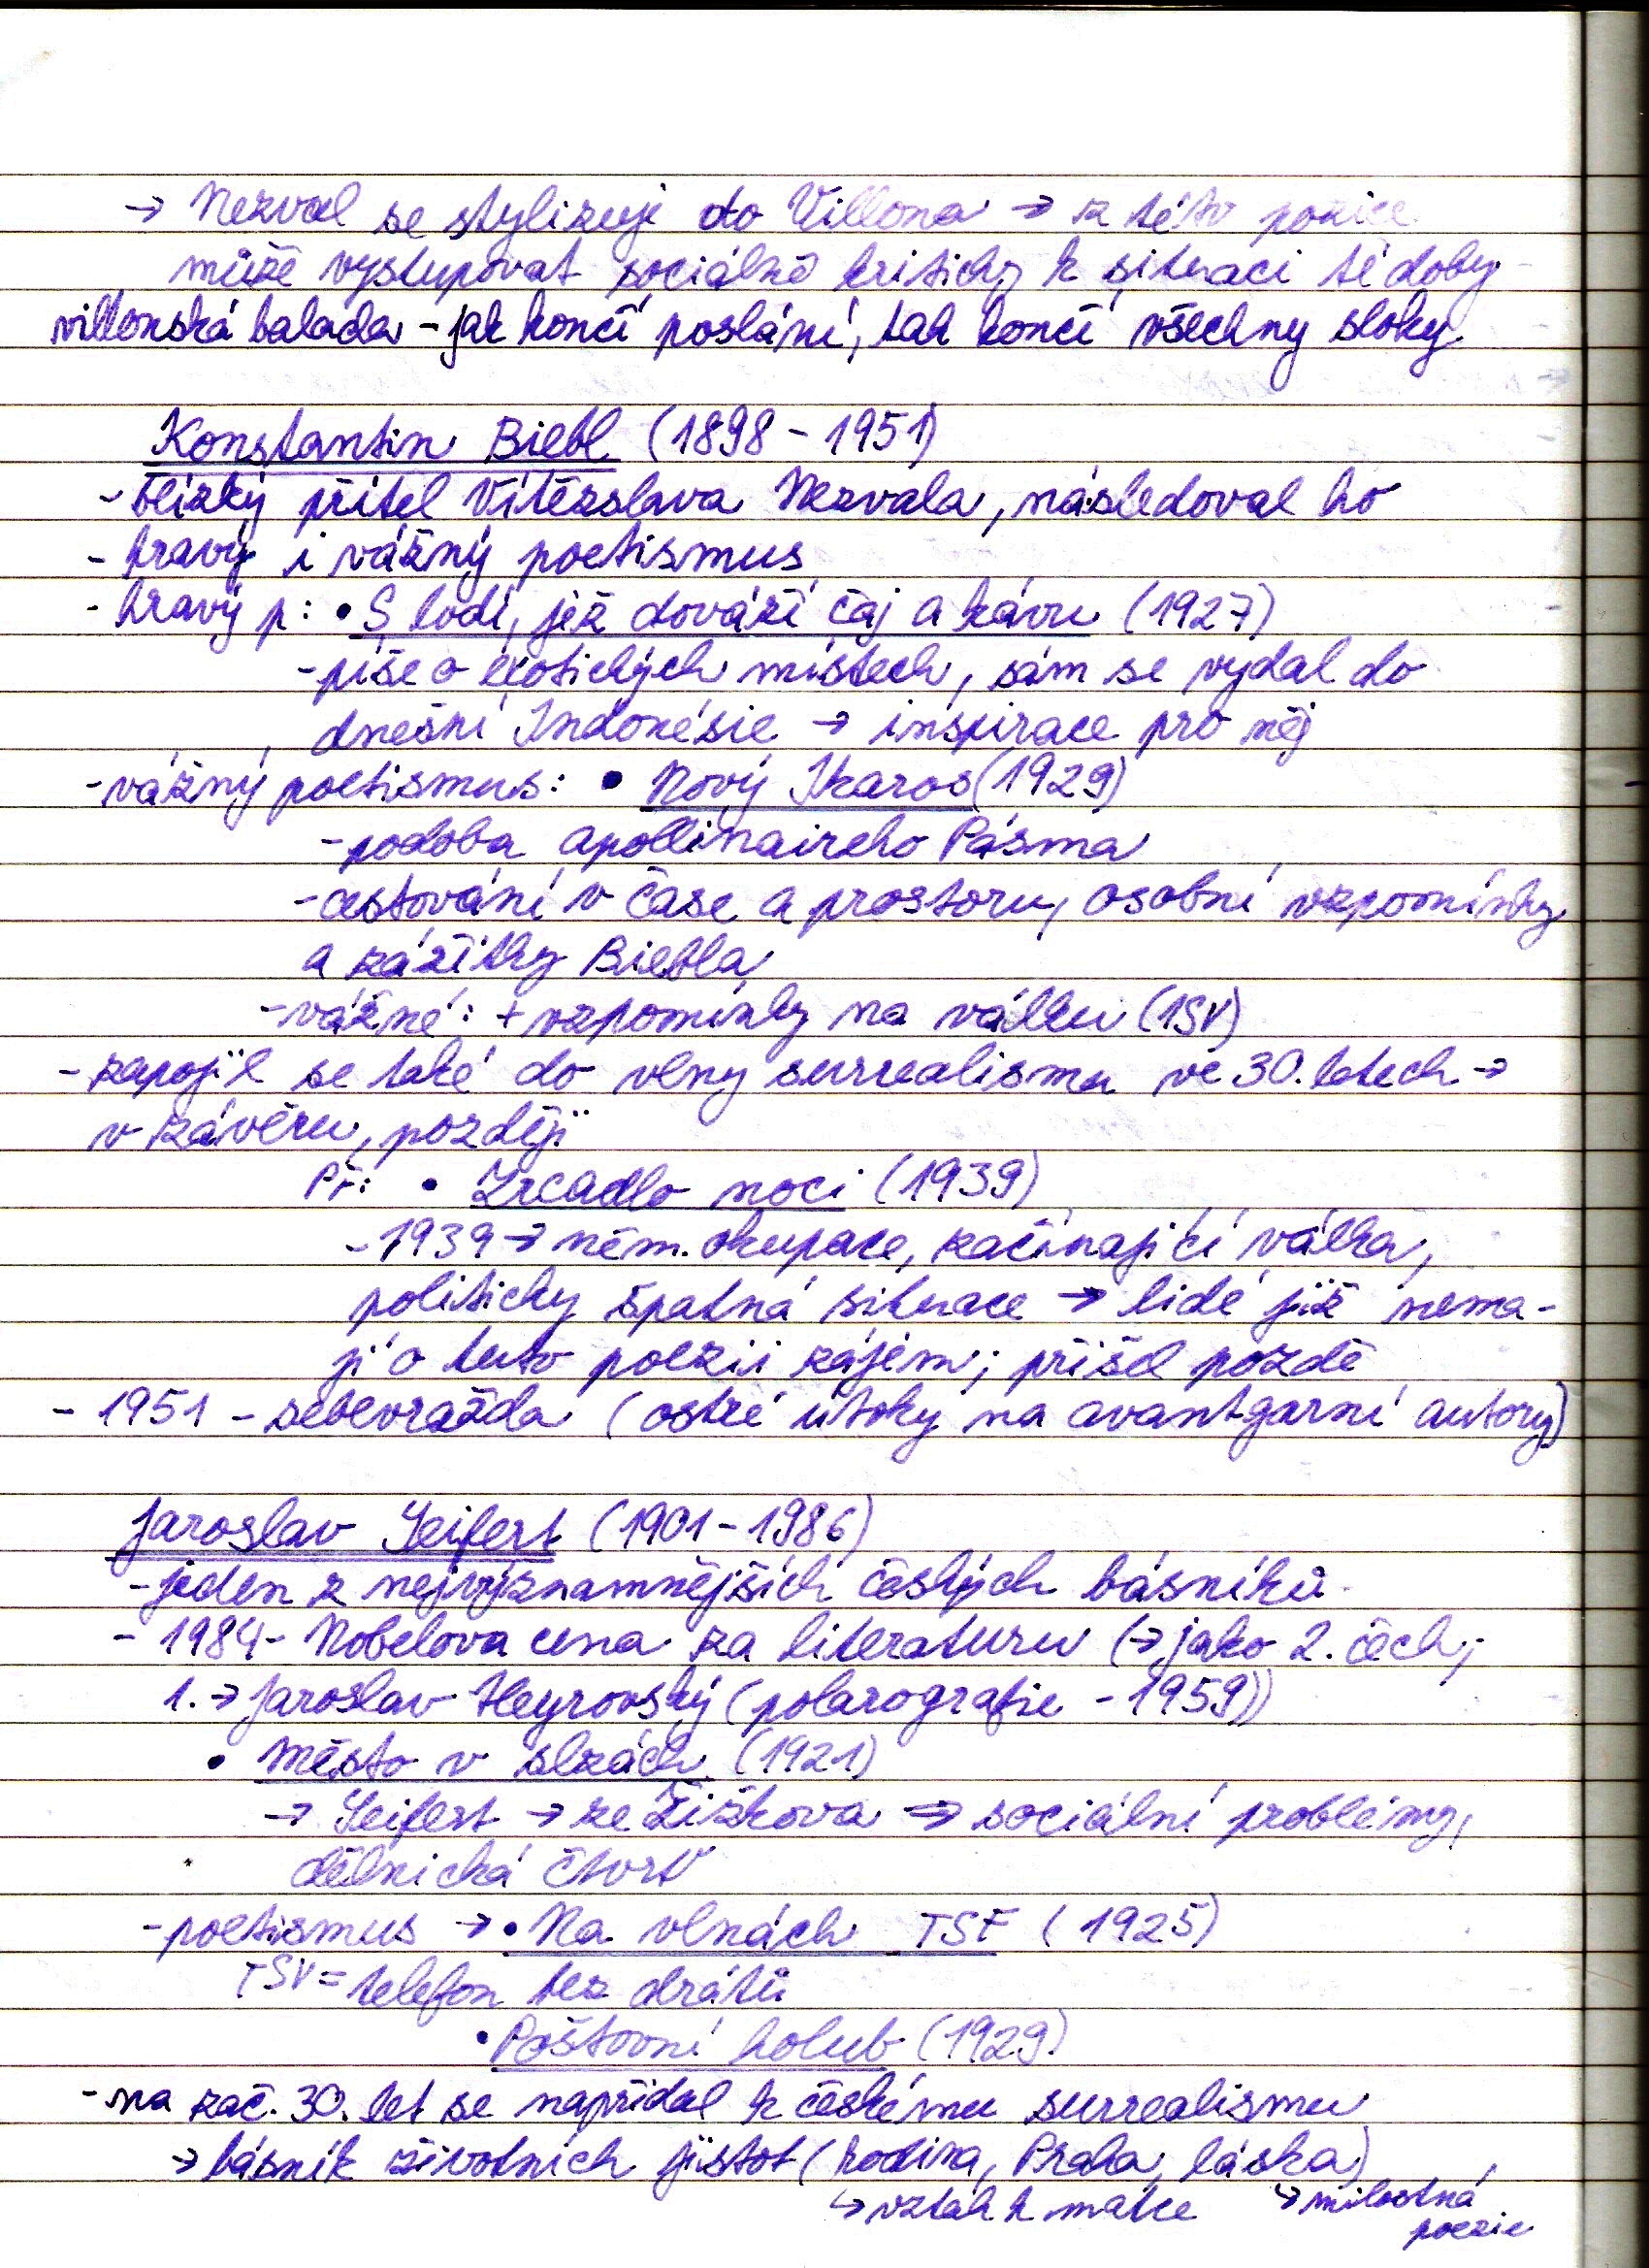 → Nezval se stylizuje do Villona → z této pozice
může vystupovat sociálně kriticky k situaci té doby
villonská balada - jak končí poslání, tak končí všechny sloky
Konstantin Biebl (1898 - 1951)
- blízký přítel Vítězslava Nezvala, následoval ho
- hravý i vážný poetismus
- hravý p: • S lodí, jež dováží čaj a kávu (1927)
- píše o exotických místech, sám se vydal do
dnešní Indonésie → inspirace pro něj
- vážný poetismus: • Nový Ikaros (1929)
- podoba apollinaireho Pásma
- cestování v čase a prostoru, osobní vzpomínky
a zážitky Biebla
- vážné: + vzpomínky na válku (1SV)
- zapojil se také do vlny surrealismu ve 30. letech →
v závěru, později
Př: • Zrcadlo noci (1939)
- 1939 → něm. okupace, začínající válka,
politicky špatná situace → lidé již nema-
jí o tuto poezii zájem; přišel pozdě
- 1951 - sebevražda (ostré útoky na avantgarní autory)
Jaroslav Seifert (1901 - 1986)
- jeden z nejvýznamnějších českých básníků
- 1984 - Nobelova cena za literaturu (→ jako 2. čech;
1. → Jaroslav Heyrovský (polarografie - 1959))
• Město v slzách (1921)
→ Seifert → ze Žižkova ⇒ sociální problémy,
dělnická čtvrť
- poetismus → • Na vlnách TSF (1925)
TSV = telefon bez drátů
• Poštovní holub (1929)
- na zač. 30. let se nepřidal k českému surrealismu
→ básník životních jistot (rodina, Praha, láska)
↳ vztah k matce ↳ milostná
poezie